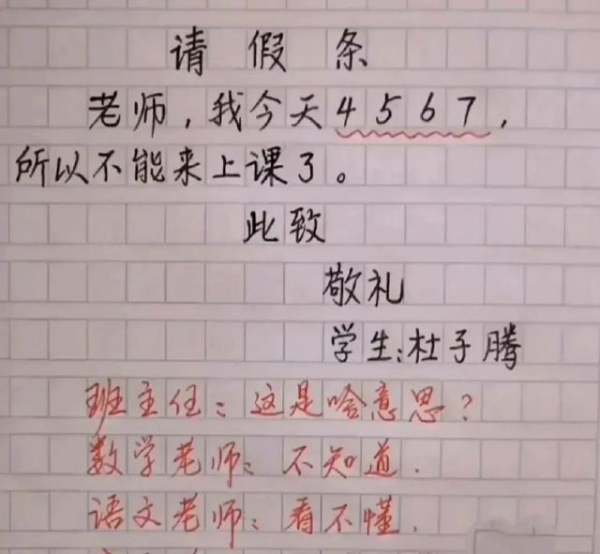 请假条
老师，我今天4567，
所以不能来上课了。
此致
敬礼
学生：杜子腾
班主任：这是啥意思？
数学老师：不知道．
语文老师：看不懂．